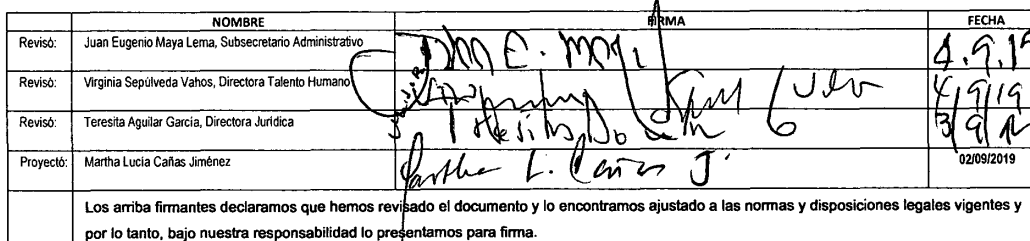 NOMBRE FIRMA FECHA
Revisó: Juan Eugenio Maya Lema, Subsecretario Administrativo 4.9.19
Revisó: Virginia Sepúlveda Vahos, Directora Talento Humano 4/9/19
Revisó: Teresita Aguilar García, Directora Jurídica 3/9/
Proyectó: Martha Lucía Cañas Jiménez Martha L. Cañas J. 02/09/2019
Los arriba firmantes declaramos que hemos revisado el documento y lo encontramos ajustado a las normas y disposiciones legales vigentes y
por lo tanto, bajo nuestra responsabilidad lo presentamos para firma.